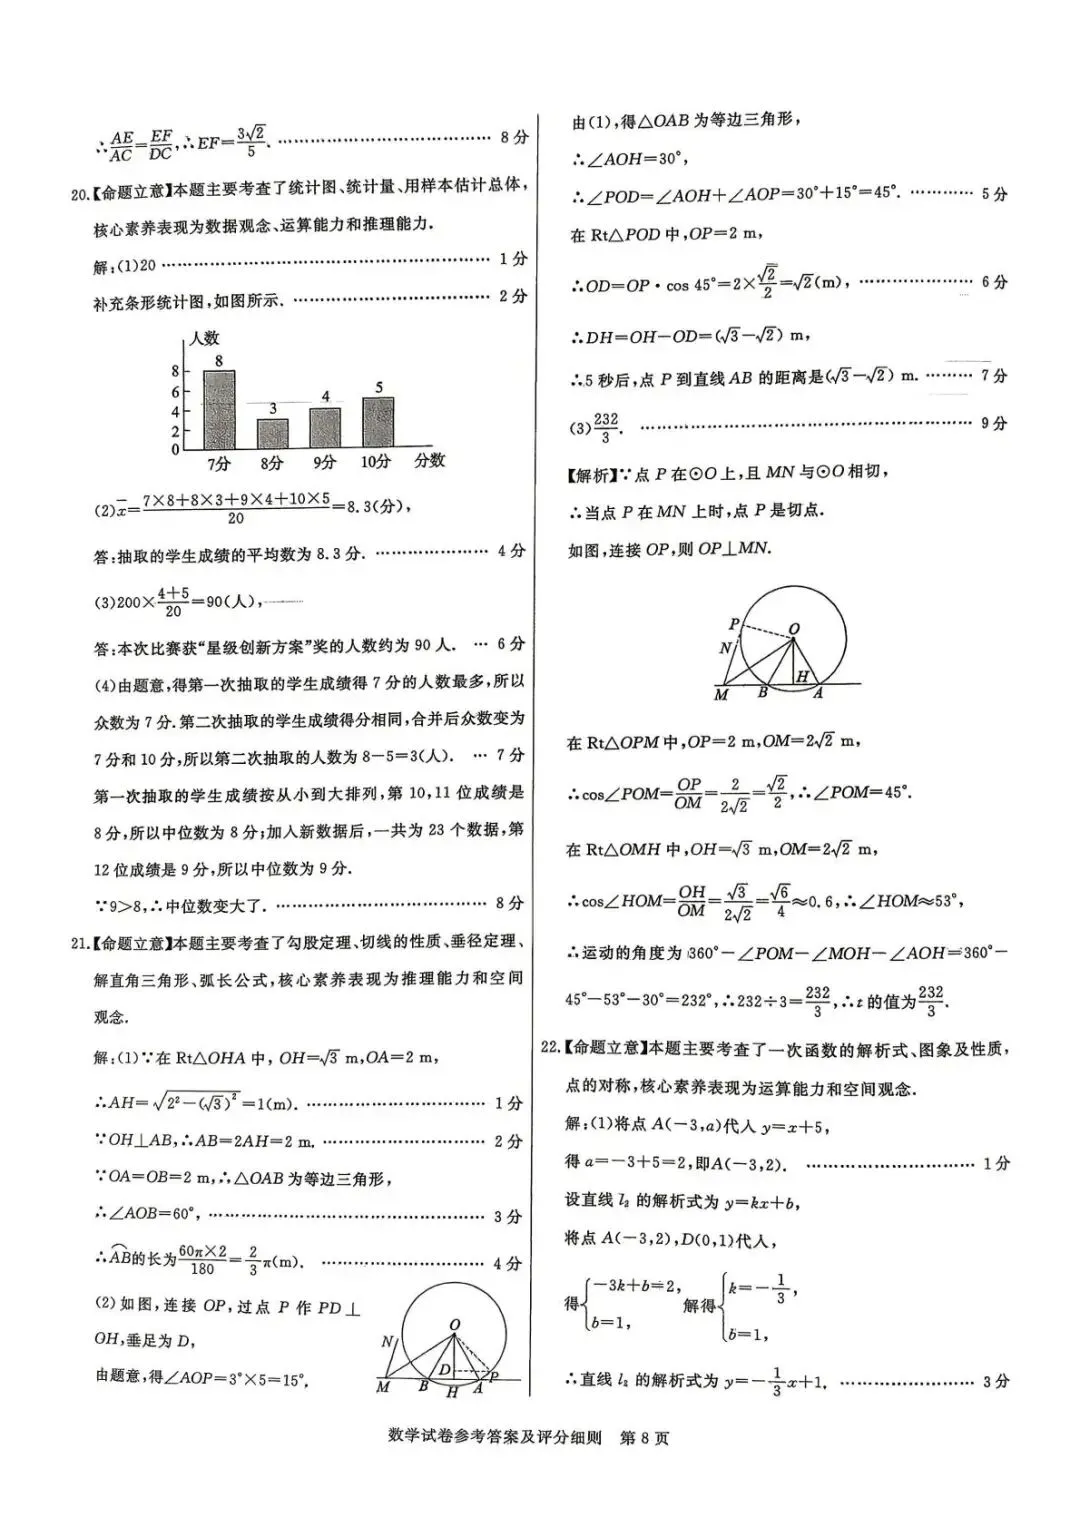 ∴AE/AC=EF/DC,∴EF=3√2/5. ………… 8分
20.【命题立意】本题主要考查了统计图、统计量、用样本估计总体,
核心素养表现为数据观念、运算能力和推理能力.
解:(1)20 ………… 1分
补充条形统计图,如图所示. ………… 2分
人数
8
6
4
2
0
8
3
4
5
7分 8分 9分 10分 分数
(2)x̄=(7×8+8×3+9×4+10×5)/20=8.3(分),
答:抽取的学生成绩的平均数为8.3分. ………… 4分
(3)200×(4+5)/20=90(人),
答:本次比赛获“星级创新方案”奖的人数约为90人. … 6分
(4)由题意,得第一次抽取的学生成绩得7分的人数最多,所以
众数为7分.第二次抽取的学生成绩得分相同,合并后众数变为
7分和10分,所以第二次抽取的人数为8-5=3(人). … 7分
第一次抽取的学生成绩按从小到大排列,第10,11位成绩是
8分,所以中位数为8分;加入新数据后,一共为23个数据,第
12位成绩是9分,所以中位数为9分.
∵9>8,∴中位数变大了. ………… 8分
21.【命题立意】本题主要考查了勾股定理、切线的性质、垂径定理、
解直角三角形、弧长公式,核心素养表现为推理能力和空间
观念.
解:(1)∵在Rt△OHA中,OH=√3 m,OA=2 m,
∴AH=√(2²-(√3)²)=1(m). ………… 1分
∵OH⊥AB,∴AB=2AH=2 m. ………… 2分
∵OA=OB=2 m,∴△OAB为等边三角形,
∴∠AOB=60°, ………… 3分
∴A͡B的长为60π×2/180=2/3π(m). ………… 4分
(2)如图,连接OP,过点P作PD⊥
OH,垂足为D,
由题意,得∠AOP=3°×5=15°.
O
N
D
P
M B H A
由(1),得△OAB为等边三角形,
∴∠AOH=30°,
∴∠POD=∠AOH+∠AOP=30°+15°=45°. ………… 5分
在Rt△POD中,OP=2 m,
∴OD=OP·cos 45°=2×√2/2=√2(m), ………… 6分
∴DH=OH-OD=(√3-√2) m,
∴5秒后,点P到直线AB的距离是(√3-√2) m. ……… 7分
(3)232/3. ………… 9分
【解析】∵点P在⊙O上,且MN与⊙O相切,
∴当点P在MN上时,点P是切点.
如图,连接OP,则OP⊥MN.
P
O
N
H
M B A
在Rt△OPM中,OP=2 m,OM=2√2 m,
∴cos∠POM=OP/OM=2/(2√2)=√2/2,∴∠POM=45°.
在Rt△OMH中,OH=√3 m,OM=2√2 m,
∴cos∠HOM=OH/OM=√3/(2√2)=√6/4≈0.6,∴∠HOM≈53°,
∴运动的角度为360°-∠POM-∠MOH-∠AOH=360°-
45°-53°-30°=232°,∴232÷3=232/3,∴t的值为232/3.
22.【命题立意】本题主要考查了一次函数的解析式、图象及性质,
点的对称,核心素养表现为运算能力和空间观念.
解:(1)将点A(-3,a)代入y=x+5,
得a=-3+5=2,即A(-3,2). ………… 1分
设直线l₂的解析式为y=kx+b,
将点A(-3,2),D(0,1)代入,
得{-3k+b=2, b=1, 解得{k=-1/3, b=1,
∴直线l₂的解析式为y=-1/3x+1. ………… 3分
数学试卷参考答案及评分细则 第8页